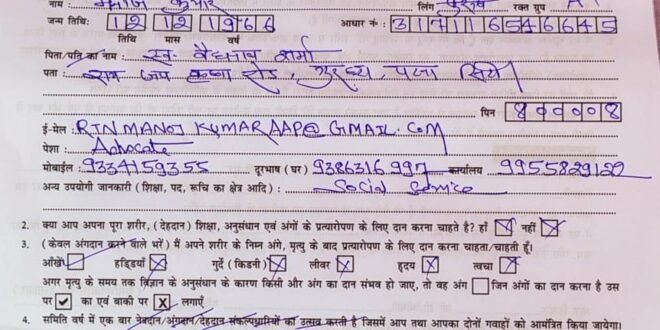 नाम : मनोज कुमार लिंग पुरुष रक्त ग्रुप A+
जन्म तिथि: 12 12 1966 आधार नं : 317116546645
तिथि मास वर्ष
पिता/पति का नाम : स्व. वैद्यनाथ शर्मा
पता : रोड,
पिन 800008
ई-मेल : RTNMANOJ KUMARAAP@GMAIL.COM
पेशा : Advocate
मोबाईल 9334159355 दूरभाष (घर) 9386316997 कार्यालय 9955829122
अन्य उपयोगी जानकारी (शिक्षा, पद, रूचि का क्षेत्र आदि) : Social Service
2. क्या आप अपना पूरा शरीर, (देहदान) शिक्षा, अनुसंधान एवं अंगों के प्रत्यारोपण के लिए दान करना चाहते है? हाँ नहीं
3. (केवल अंगदान करने वाले भरें) मैं अपने शरीर के निम्न अंगे, मृत्यु के बाद प्रत्यारोपण के लिए दान करना चाहता/चाहती हूँ।
आँखें हड्डियाँ गुर्दे (किडनी) लीवर हृदय त्वचा
अगर मृत्यु के समय तक विज्ञान के अनुसंधान के कारण किसी और अंग का दान संभव हो जाए, तो वह अंग जिन अंगों का दान करना है उस
पर ✓ का एवं बाकी पर X लगाएँ
4. समिति वर्ष में एक बार नेत्रदान/अंगदान/देहदान संकल्पधारियों का उत्सव करती है जिसमें आप तथा आपका दोनों गवाहों को आमन्त्रित किया जायेगा।